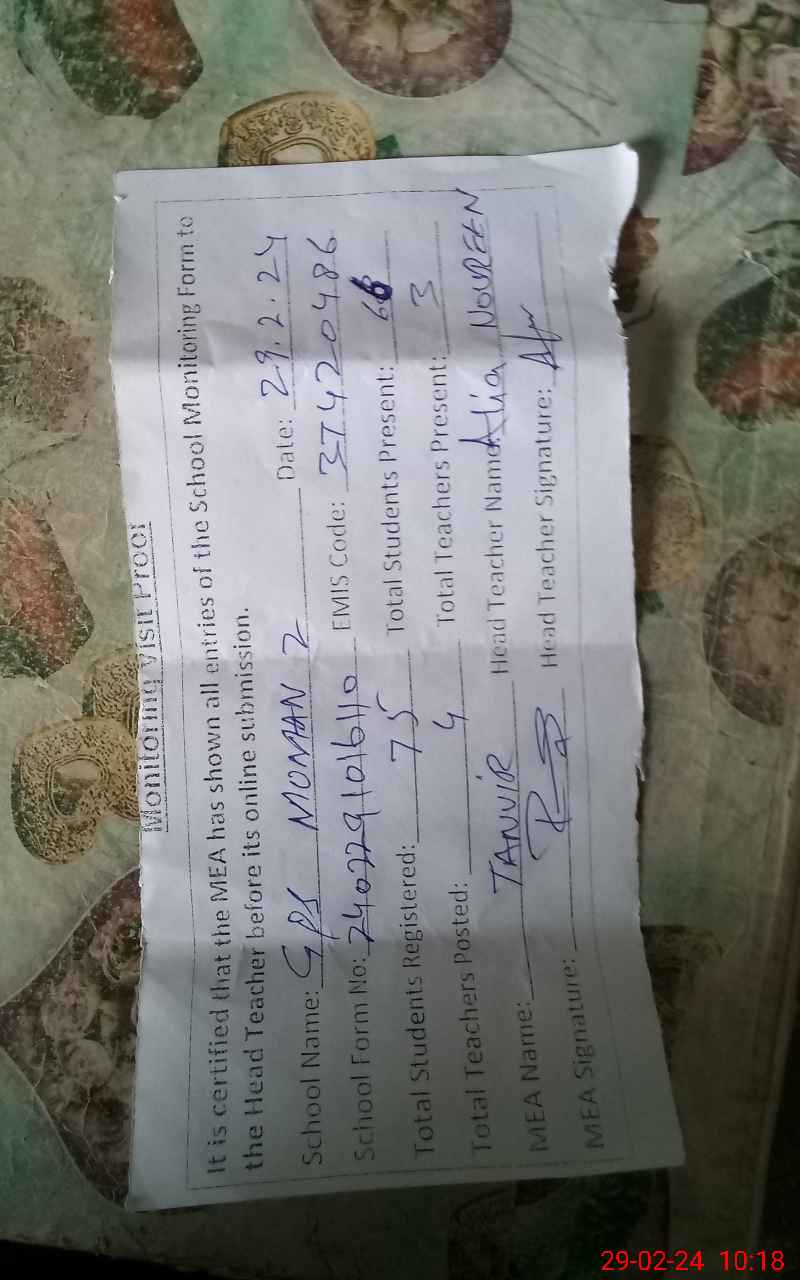 Monitoring Visit Proof
It is certified that the MEA has shown all entries of the School Monitoring Form to
the Head Teacher before its online submission.
School Name: GPS MOMAN 2 Date: 29.2.24
School Form No: 2402291016110 EMIS Code: 37420486
Total Students Registered: 75 Total Students Present: 66
Total Teachers Posted: 4 Total Teachers Present: 3
MEA Name: TANVIR Head Teacher Name: Alia NOUREEN
MEA Signature: Head Teacher Signature:
29-02-24 10:18